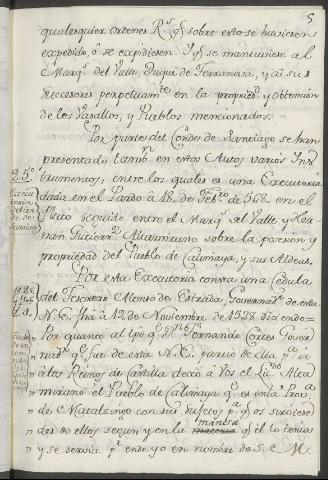 5
qualesquier ordenes R.s q.e sobre esto se huviesen
expedido, ó se expidiesen. Y q.e se mantuviese al
Marq.s del Valle, Duque de Terranova, y á sus
subcesores perpetuam.te en la propried.d y obtención
de los Vasallos, y Pueblos mencionados.
Por parte del Conde de Santiago se han
presentado tamb.n en estos Autos varios Ins-
trumentos, entre los quales es una Executoria
dada en el Pardo á 18 de Feb.o de 568 en el
Pleito seguido entre el Marq.s del Valle y Her-
nan Gutierr.z Altamirano sobre la posesion y
propiedad del Pueblo de Calimaya, y sus Aldeas.
Por esta Executoria consta una Cedula
del Tesorero Alonso de Estrada Governad.r de esta
N. E. fha á 12 de Noviembre de 1528 diciendo=
Por quanto al tpo q.e D.n Hernando Cortes Gover-
nad.r q.e fué de esta N. E. partió de ella p.a ir
á los Reinos de Castilla dexó á Vos el Liz.do Alta-
mirano el Pueblo de Calimaya q.e es en la Prov.a
de Matalzingo con sus sujetos p.a q.e os sirviese-
des de ellos segun y en la manera q.e el lo tenia
y se servia p.r ende yo en nombre de S. C. M.